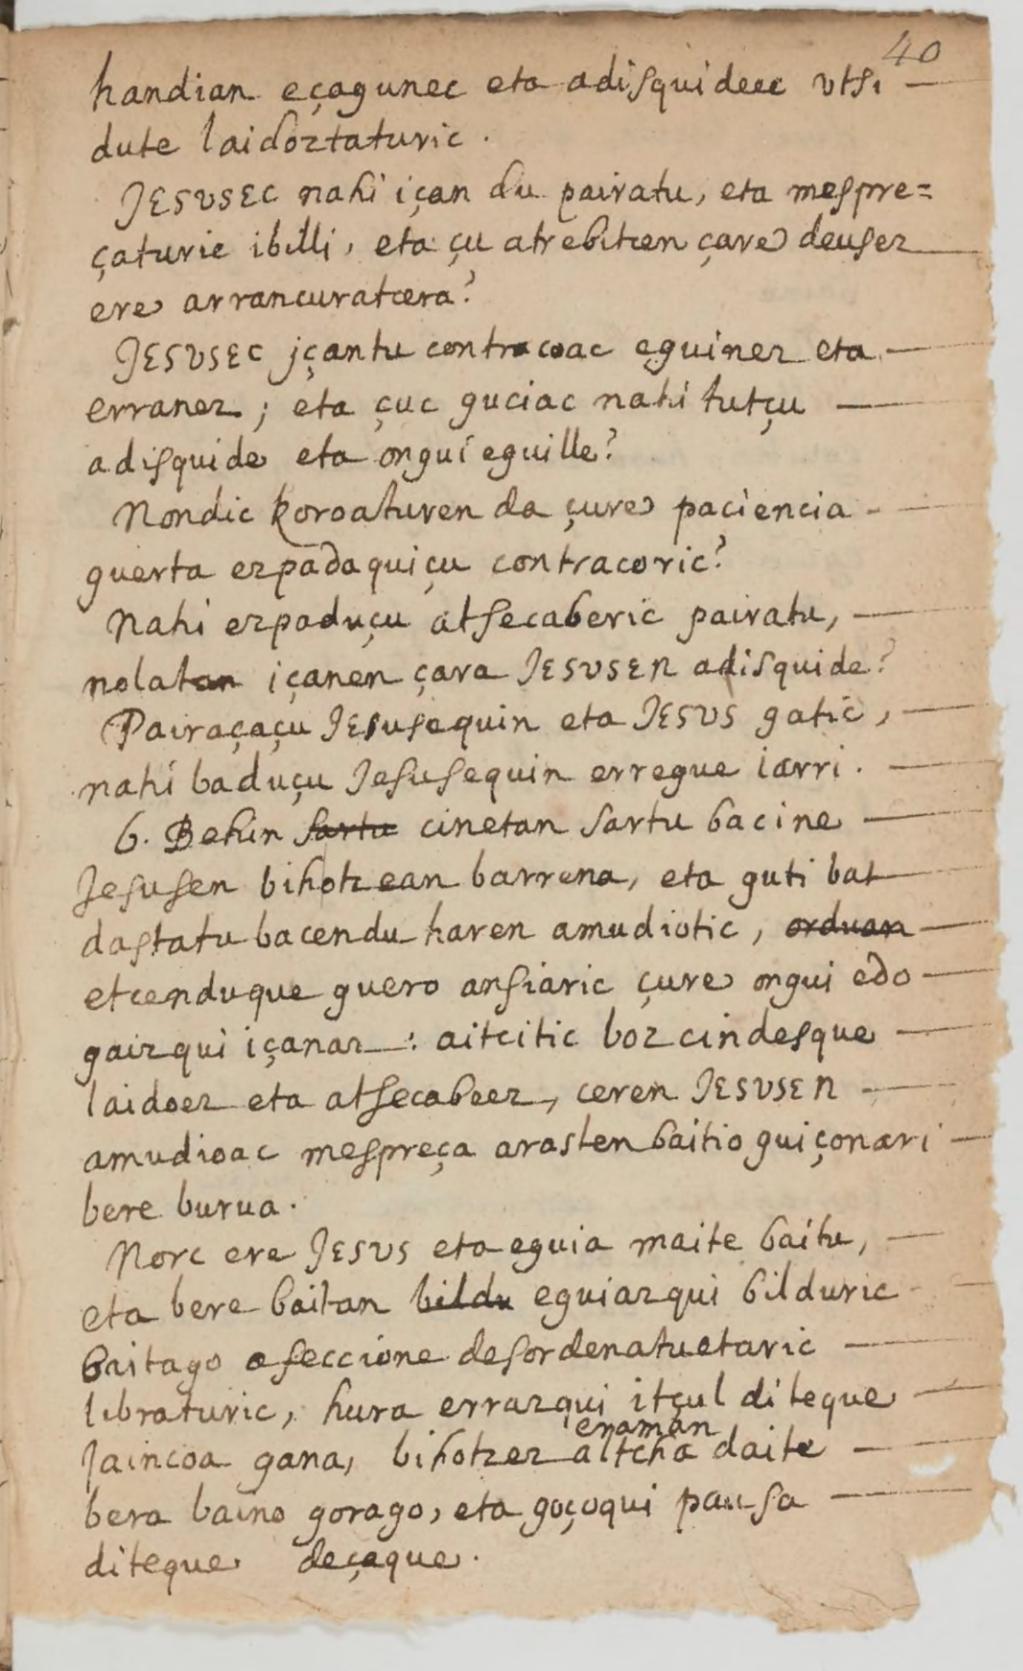 40
handian eçagunec eta adisquideec vtsi
dute laidoztaturic.
JESVSEC nahi içan du pairatu, eta mespre=
çaturic ibilli, eta çu atrebitcen çare deusez
ere arrancuratcera?
JESVSEC jçantu contracoac eguinez eta
erranez; eta çuc guciac nahi tutçu
adisquide eta ongui eguille?
Nondic koroaturen da çure paciencia
guerta ezpadaquiçu contracoric?
Nahi ezpaduçu atsecaberic pairatu,
nolatan içanen çara JESVSEN adisquide?
Pairaçaçu JEsusequin eta JESVS gatic,
nahi baduçu Jesusequin erregue iarri.
6. Behin sartu cinetan sartu bacine
Jesusen bihotzean barrena, eta guti bat
dastatu bacendu haren amudiotic, orduan
etcenduque guero ansiaric çure ongui edo
gaizqui içanaz: aitcitic boz cindesque
laidoez eta atsecabeez, ceren JESVSEN
amudioac mespreça arasten baitio guiçonari
bere burua.
Norc ere JESVS eta eguia maite baitu,
eta bere baitan bildu eguiazqui bilduric
baitago afeccione desordenatuetaric
libraturic, hura errazqui itçul diteque
eraman
Jaincoa gana, bihotzez altcha daite
bera baino gorago, eta goçoqui pausa
diteque deçaque.